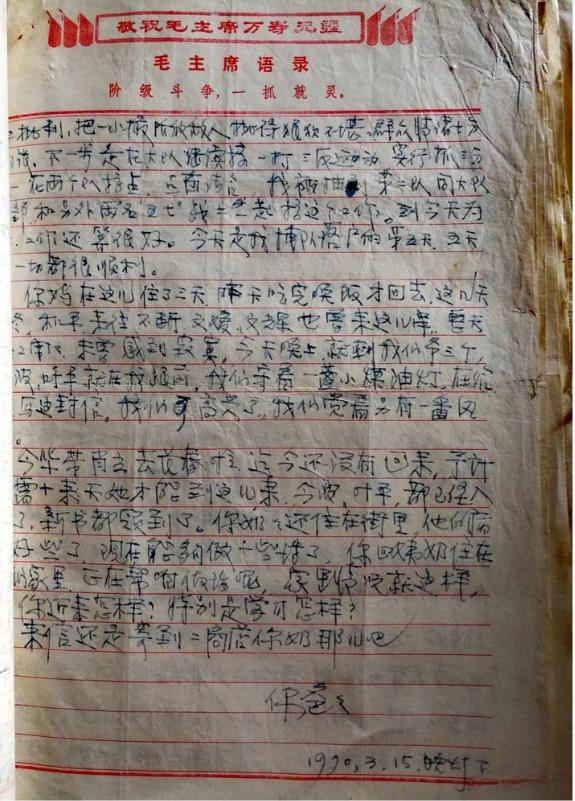 敬祝毛主席万寿无疆
毛主席语录
阶级斗争，一抓就灵。
批判，把一小撮阶级敌人批得狼狈不堪，群众情绪十分
下一步是在大队继续搞一打三反运动 实行抓
在两个队搞点，我被抽到第二队同大队
和另外两名"五七"战士一起搞这个工作。到今天为
工作还算很好。今天是我插队落户的第五天，五天
一切都很顺利。
你妈在这儿住了三天 昨天吃完晚饭才回去，这几天
来往不断，也曾来这儿串，整天
未曾感到寂寞，今天晚上就剩我们爷三个，
波，叶平就在我跟前，我们守着一盏小煤油灯，在给
写这封信，我们可高兴了，我们觉着另有一番风
今华带肖去去长春 迄今还没有回来，予计
十来天她才能到这儿来，今波，叶平，都已经入
了，新书都领到了。你奶奶还住在街里 他的病
好些了 现在能够做一些活了，你奶住在
家里 正在帮咱做活呢，家里情况就这样，
你近来怎样？特别是学习怎样？
来信还是寄到二商店你奶那儿吧
你爸爸
1970.3.15.晚灯下